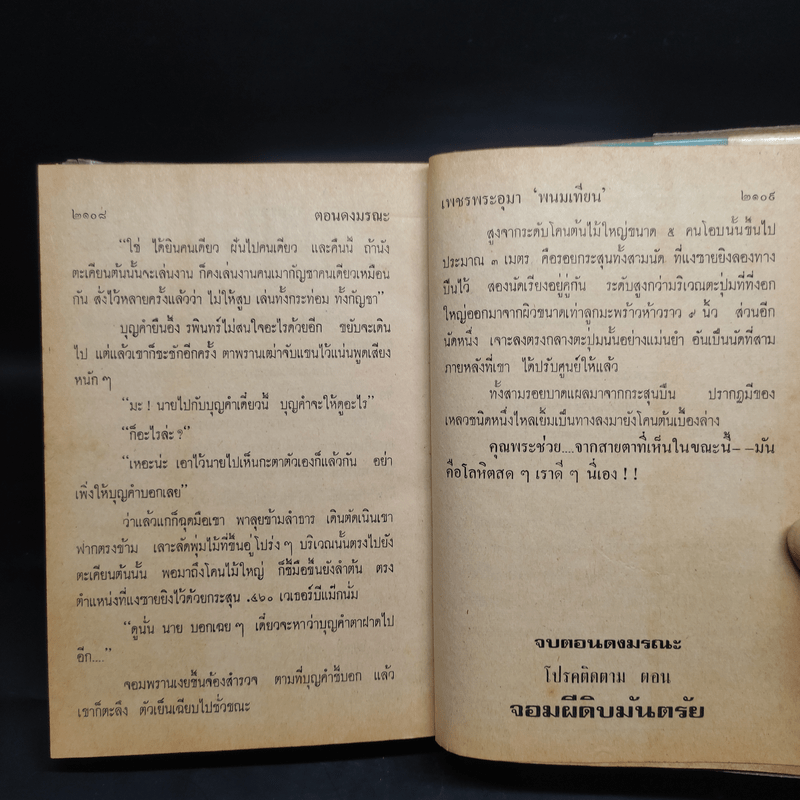 ๒๑๐๘ ตอนดงมรณะ
“ใช่ ได้ยินคนเดียว ฝันไปคนเดียว และคืนนี้ ถ้านัง
ตะเคียนต้นนั้นจะเล่นงาน ก็คงเล่นงานคนเมากัญชาคนเดียวเหมือน
กัน สั่งไว้หลายครั้งแล้วว่า ไม่ให้สูบ เล่นทั้งกระท่อม ทั้งกัญชา”
บุญคำยืนอึ้ง รพินทร์ไม่สนใจอะไรด้วยอีก ขยับจะเดิน
ไป แต่แล้วเขาก็ชะงักอีกครั้ง ตาพรานเฒ่าจับแขนไว้แน่นพูดเสียง
หนักๆ
“มะ ! นายไปกับบุญคำเดี๋ยวนี้ บุญคำจะให้ดูอะไร”
“ก็อะไรล่ะ ?”
“เหอะน่ะ เอาไว้นายไปเห็นกะตาตัวเองก็แล้วกัน อย่า
เพิ่งให้บุญคำบอกเลย”
ว่าแล้วแกก็ฉุดมือเขา พาลุยข้ามลำธาร เดินตัดเนินเขา
ฟากตรงข้าม เลาะลัดพุ่มไม้ที่ขึ้นอยู่โปร่งๆ บริเวณนั้นตรงไปยัง
ตะเคียนต้นนั้น พอมาถึงโคนไม้ใหญ่ ก็ชี้มือขึ้นยังลำต้น ตรง
ตำแหน่งที่แงซายยิงไว้ด้วยกระสุน .๔๖๐ เวเธอร์บีแม็กนั่ม
“ดูนั่น นาย บอกเฉยๆ เดี๋ยวจะหาว่าบุญคำตาฝาดไป
อีก....”
จอมพรานเงยขึ้นจ้องสำรวจ ตามที่บุญคำชี้บอก แล้ว
เขาก็ตะลึง ตัวเย็นเฉียบไปชั่วขณะ
เพชรพระอุมา ‘พนมเทียน’ ๒๑๐๙
สูงจากระดับโคนต้นไม้ใหญ่ขนาด ๕ คนโอบนั้นขึ้นไป
ประมาณ ๓ เมตร คือรอยกระสุนทั้งสามนัด ที่แงซายยิงลองทาง
ปืนไว้ สองนัดเรียงอยู่คู่กัน ระดับสูงกว่าบริเวณตะปุ่มที่ที่งอก
ใหญ่ออกมาจากผิวขนาดเท่าลูกมะพร้าวห้าวราว ๙ นิ้ว ส่วนอีก
นัดหนึ่ง เจาะลงตรงกลางตะปุ่มนั้นอย่างแม่นยำ อันเป็นนัดที่สาม
ภายหลังที่เขา ได้ปรับศูนย์ให้แล้ว
ทั้งสามรอยบาดแผลมาจากกระสุนปืน ปรากฏมีของ
เหลวชนิดหนึ่งไหลเยิ้มเป็นทางลงมายังโคนต้นเบื้องล่าง
คุณพระช่วย....จากสายตาที่เห็นในขณะนี้--มัน
คือโลหิตสด ๆ เราดี ๆ นี่เอง ! !
จบตอนดงมรณะ
โปรดติดตาม ตอน
จอมผีดิบมันตรัย